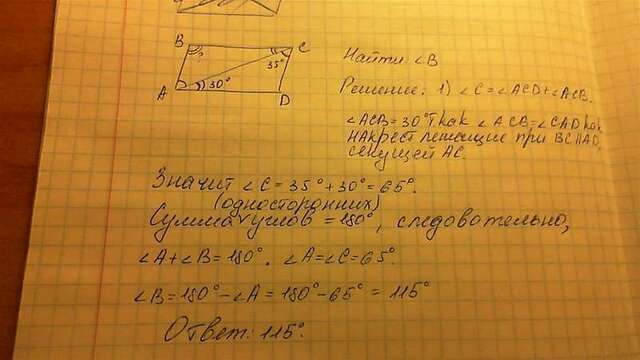 B
C
?
35°
30°
A
D
Найти ∠B
Решение: 1) ∠C = ∠ACD + ∠ACB.
∠ACB = 30° Т как ∠ACB = ∠CAD как
накрест лежащие при BC||AD,
секущей AC.
Значит ∠C = 35° + 30° = 65°.
(односторонних)
Сумма углов = 180°, следовательно,
∠A + ∠B = 180°. ∠A = ∠C = 65°.
∠B = 180° - ∠A = 180° - 65° = 115°
Ответ: 115°.